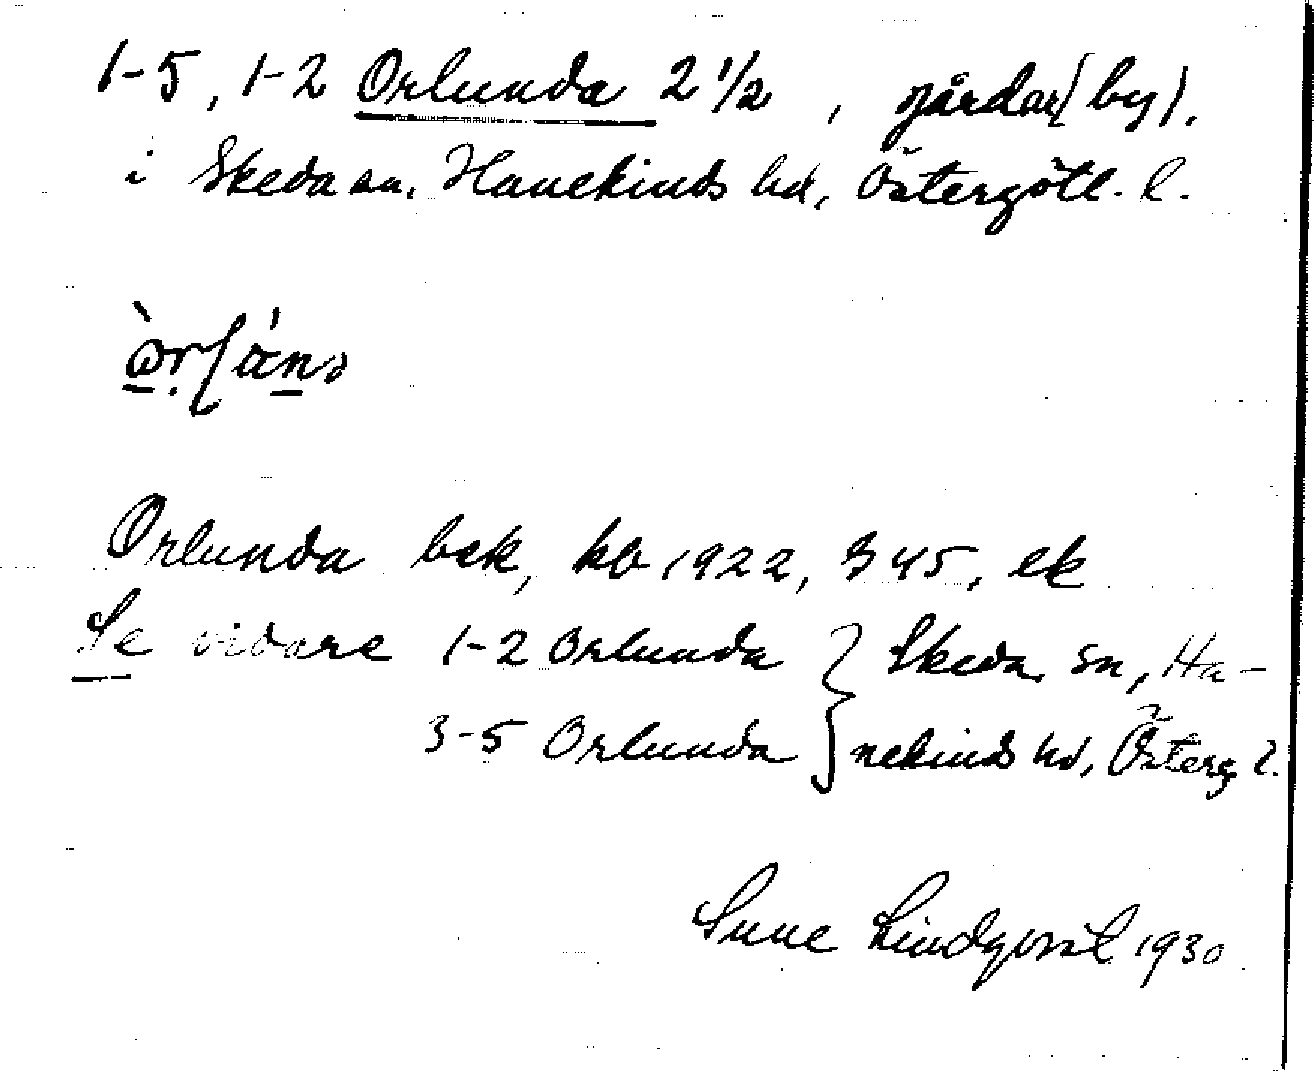 1-5, 1-2 Orlunda 2 1/2, gårdar (by).
i Skeda sn, Hanekinds hd, Östergötl. l.
Orlunda bek, kb 1922, 345, ek
Se vidare 1-2 Orlunda } Skeda sn, Ha-
3-5 Orlunda } nekinds hd, Österg l.
Sune Lindqvist 1930